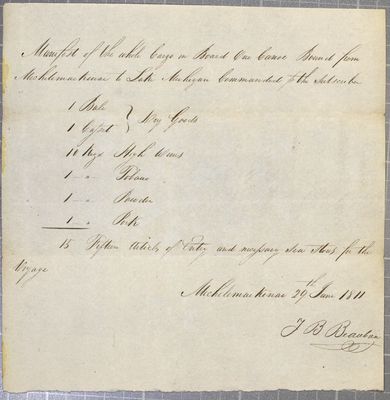 Manifest of the whole Cargo on Board One Canoe Bound from
Michilimackinac to Lake Michigan Commanded by the Subscriber
1 Bale
1 Casset } Dry Goods
10 Kegs High Wines
1 - " - Tobacco
1 - " - Powder
1 - " - Pork
15 Fifteen Articles of Entry and necessary Sea Stores for the
Voyage
Michilimackinac 29th June 1811
J B Beaubien